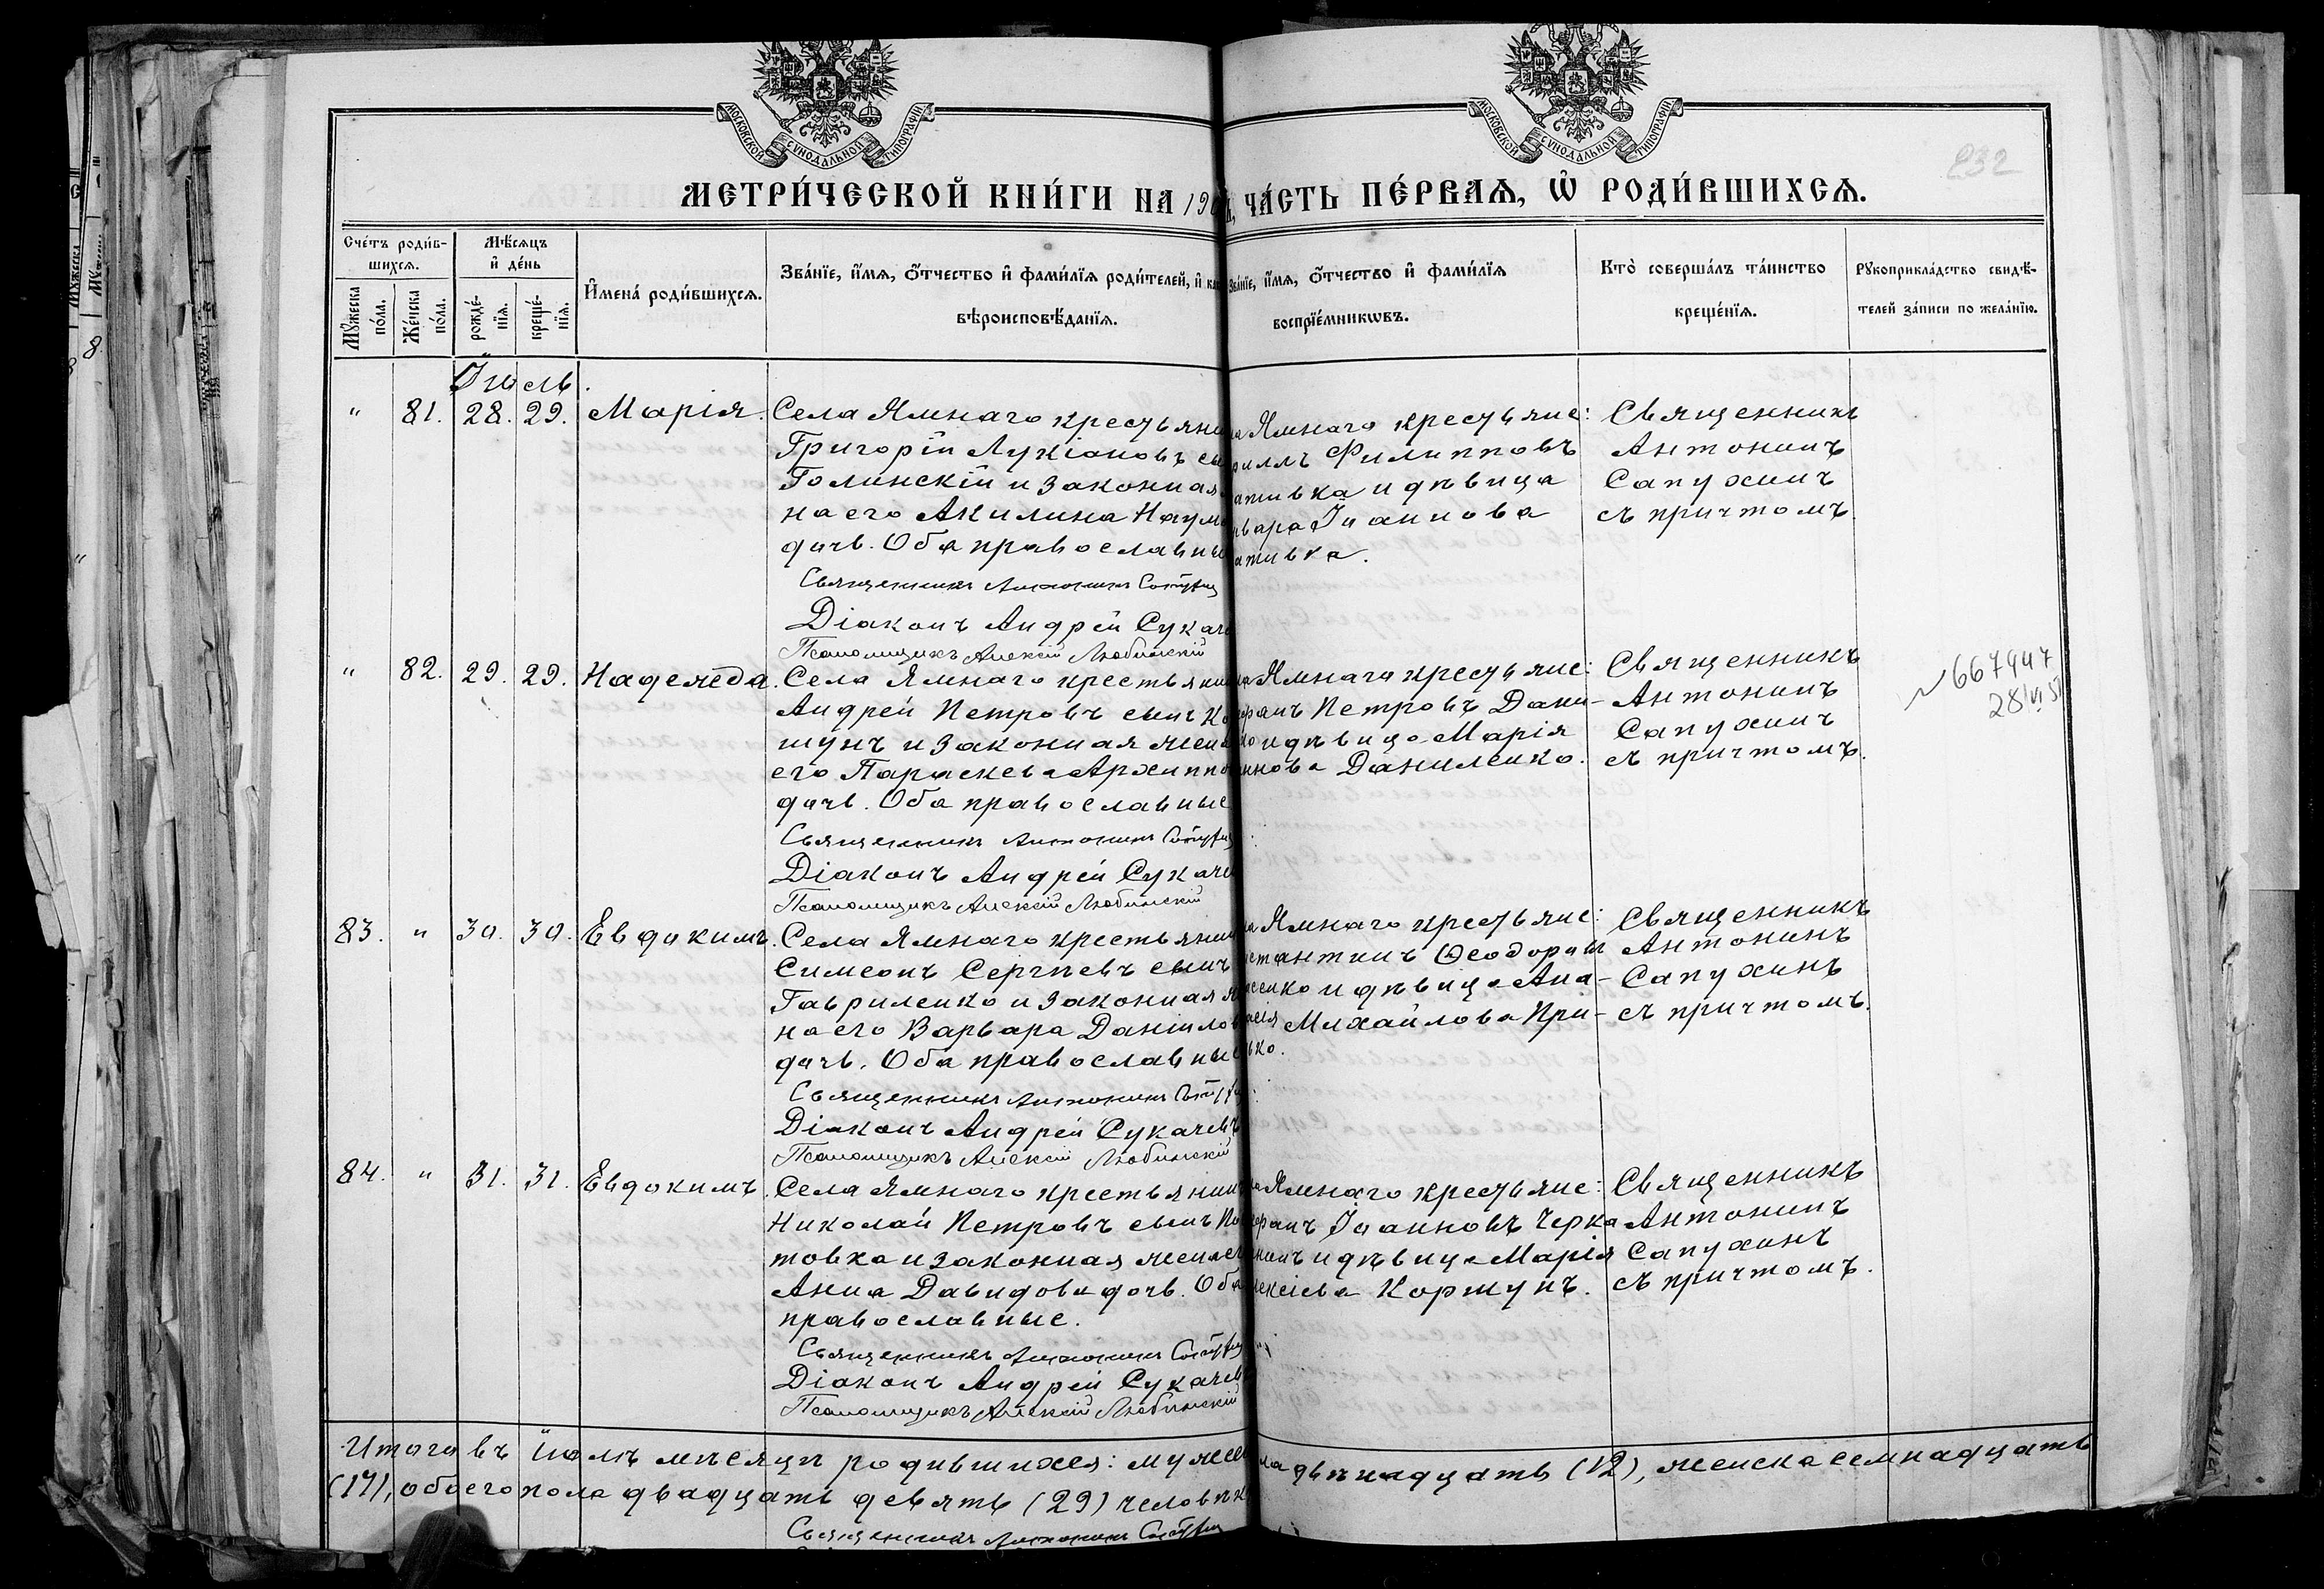 МОСКОВСКОЙ СѴНОДАЛЬНОЙ ТИПОГРАФІИ
МОСКОВСКОЙ СѴНОДАЛЬНОЙ ТИПОГРАФІИ
232
МЕТРИ́ЧЕСКОЙ КНИ́ГИ НА 190 ЧА́СТЬ ПЕ́РВАѦ, Ѡ҆ РОДИ́ВШИХСѦ.
Сче́тъ роди́в-
шихсѧ.
Мꙋ́жеска по́ла.
Же́нска по́ла.
Мѣ́сѧцъ
и҆ де́нь
рожде́-
нїѧ.
креще́-
нїѧ.
И҆мена̀ роди́вшихсѧ.
Зва́нїе, и҆́мѧ, ѻ҆́тчество и҆ фами́лїѧ роди́телей, и҆
вѣроисповѣ́данїѧ.
Зва́нїе, и҆́мѧ, ѻ҆́тчество и҆ фами́лїѧ
воспрїе́мникѡвъ.
Кто̀ соверша́лъ та́инство
креще́нїѧ.
Рꙋкоприкла́дство свидѣ́-
телей за́писи по жела́нїю.
Іюль.
" 81. 28. 29. Марія. Села Ямнаго крестьяни
Григорій Лукіановъ сы
Голинскій и законная
на его Акилина Наумо
дочь. Оба православны
Священникъ Антонинъ
Діаконъ Андрей Сукаче
Псаломщикъ Алексій Любинскій
Ямнаго крестьяне:
риллъ Филипповъ
ативка и дѣвица
рвара Іоаннова
ативка.
Священникъ
Антонинъ
Сапухинъ
съ причтомъ.
" 82. 29. 29. Надежда. Села Ямнаго крестьянин
Андрей Петровъ сынъ Ко
шунъ и законная жена
его Параскева Архиппо
дочь. Оба православные
Священникъ Антонинъ
Діаконъ Андрей Сукаче
Псаломщикъ Алексій Любинскій
Ямнаго крестьяне:
фанъ Петровъ Дани-
ко и дѣвица Марія
ннова Даниленко.
Священникъ
Антонинъ
Сапухинъ
съ причтомъ.
№ 667447
28/VI 5
83. " 30. 30. Евдокимъ. Села Ямнаго крестьянин
Симеонъ Сергѣевъ сынъ
Гавриленко и законная ж
на его Варвара Даніилов
дочь. Оба православные
Священникъ Антонинъ
Діаконъ Андрей Сукачевъ
Псаломщикъ Алексій Любинскій
Ямнаго крестьяне:
стантинъ Ѳеодоровъ
сенко и дѣвица Ана-
асія Михайлова При-
ько.
Священникъ
Антонинъ
Сапухинъ
съ причтомъ.
84. " 31. 31. Евдокимъ. Села Ямнаго крестьянин
Николай Петровъ сынъ По
товка и законная жена ег
Анна Давидова дочь. Оба
православные.
Священникъ Антонинъ
Діаконъ Андрей Сукачев
Псаломщикъ Алексій Любинскій
Ямнаго крестьяне:
фанъ Іоанновъ Черка
нинъ и дѣвица Марія
лексіева Коршунъ.
Священникъ
Антонинъ
Сапухинъ
съ причтомъ.
Итого въ іюлѣ мѣсяцѣ родившихся: мужес ла двѣнадцать (12), женска семнадцать
(17), обоего пола двадцать девять (29) человѣк
Священникъ Антонинъ